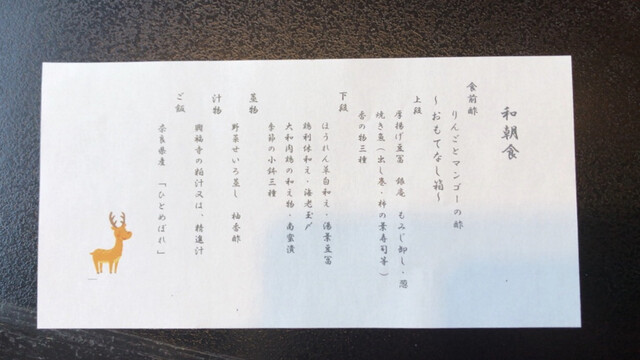 和朝食
食前酢
りんごとマンゴーの酢
〜おもてなし箱〜
上段
厚揚げ豆冨 銀庵 もみじ卸し・葱
焼き魚(出し巻・柿の葉寿司等)
香の物三種
下段
ほうれん草白和え・湯葉豆冨
鶏利休和え・海老玉〆
大和肉鶏の和え物・南蛮漬
季節の小鉢三種
蒸物
野菜せいろ蒸し 柚香酢
汁物
興福寺の粕汁又は、精進汁
ご飯
奈良県産 「ひとめぼれ」